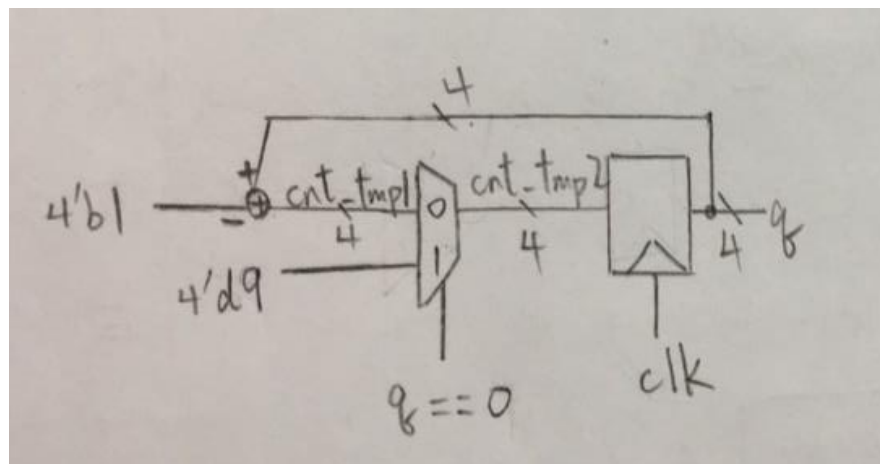 4
+
4'b1
-
+
cnt_tmp1
4
0
1
cnt_tmp2
4
4
q
4'd9
q == 0
clk